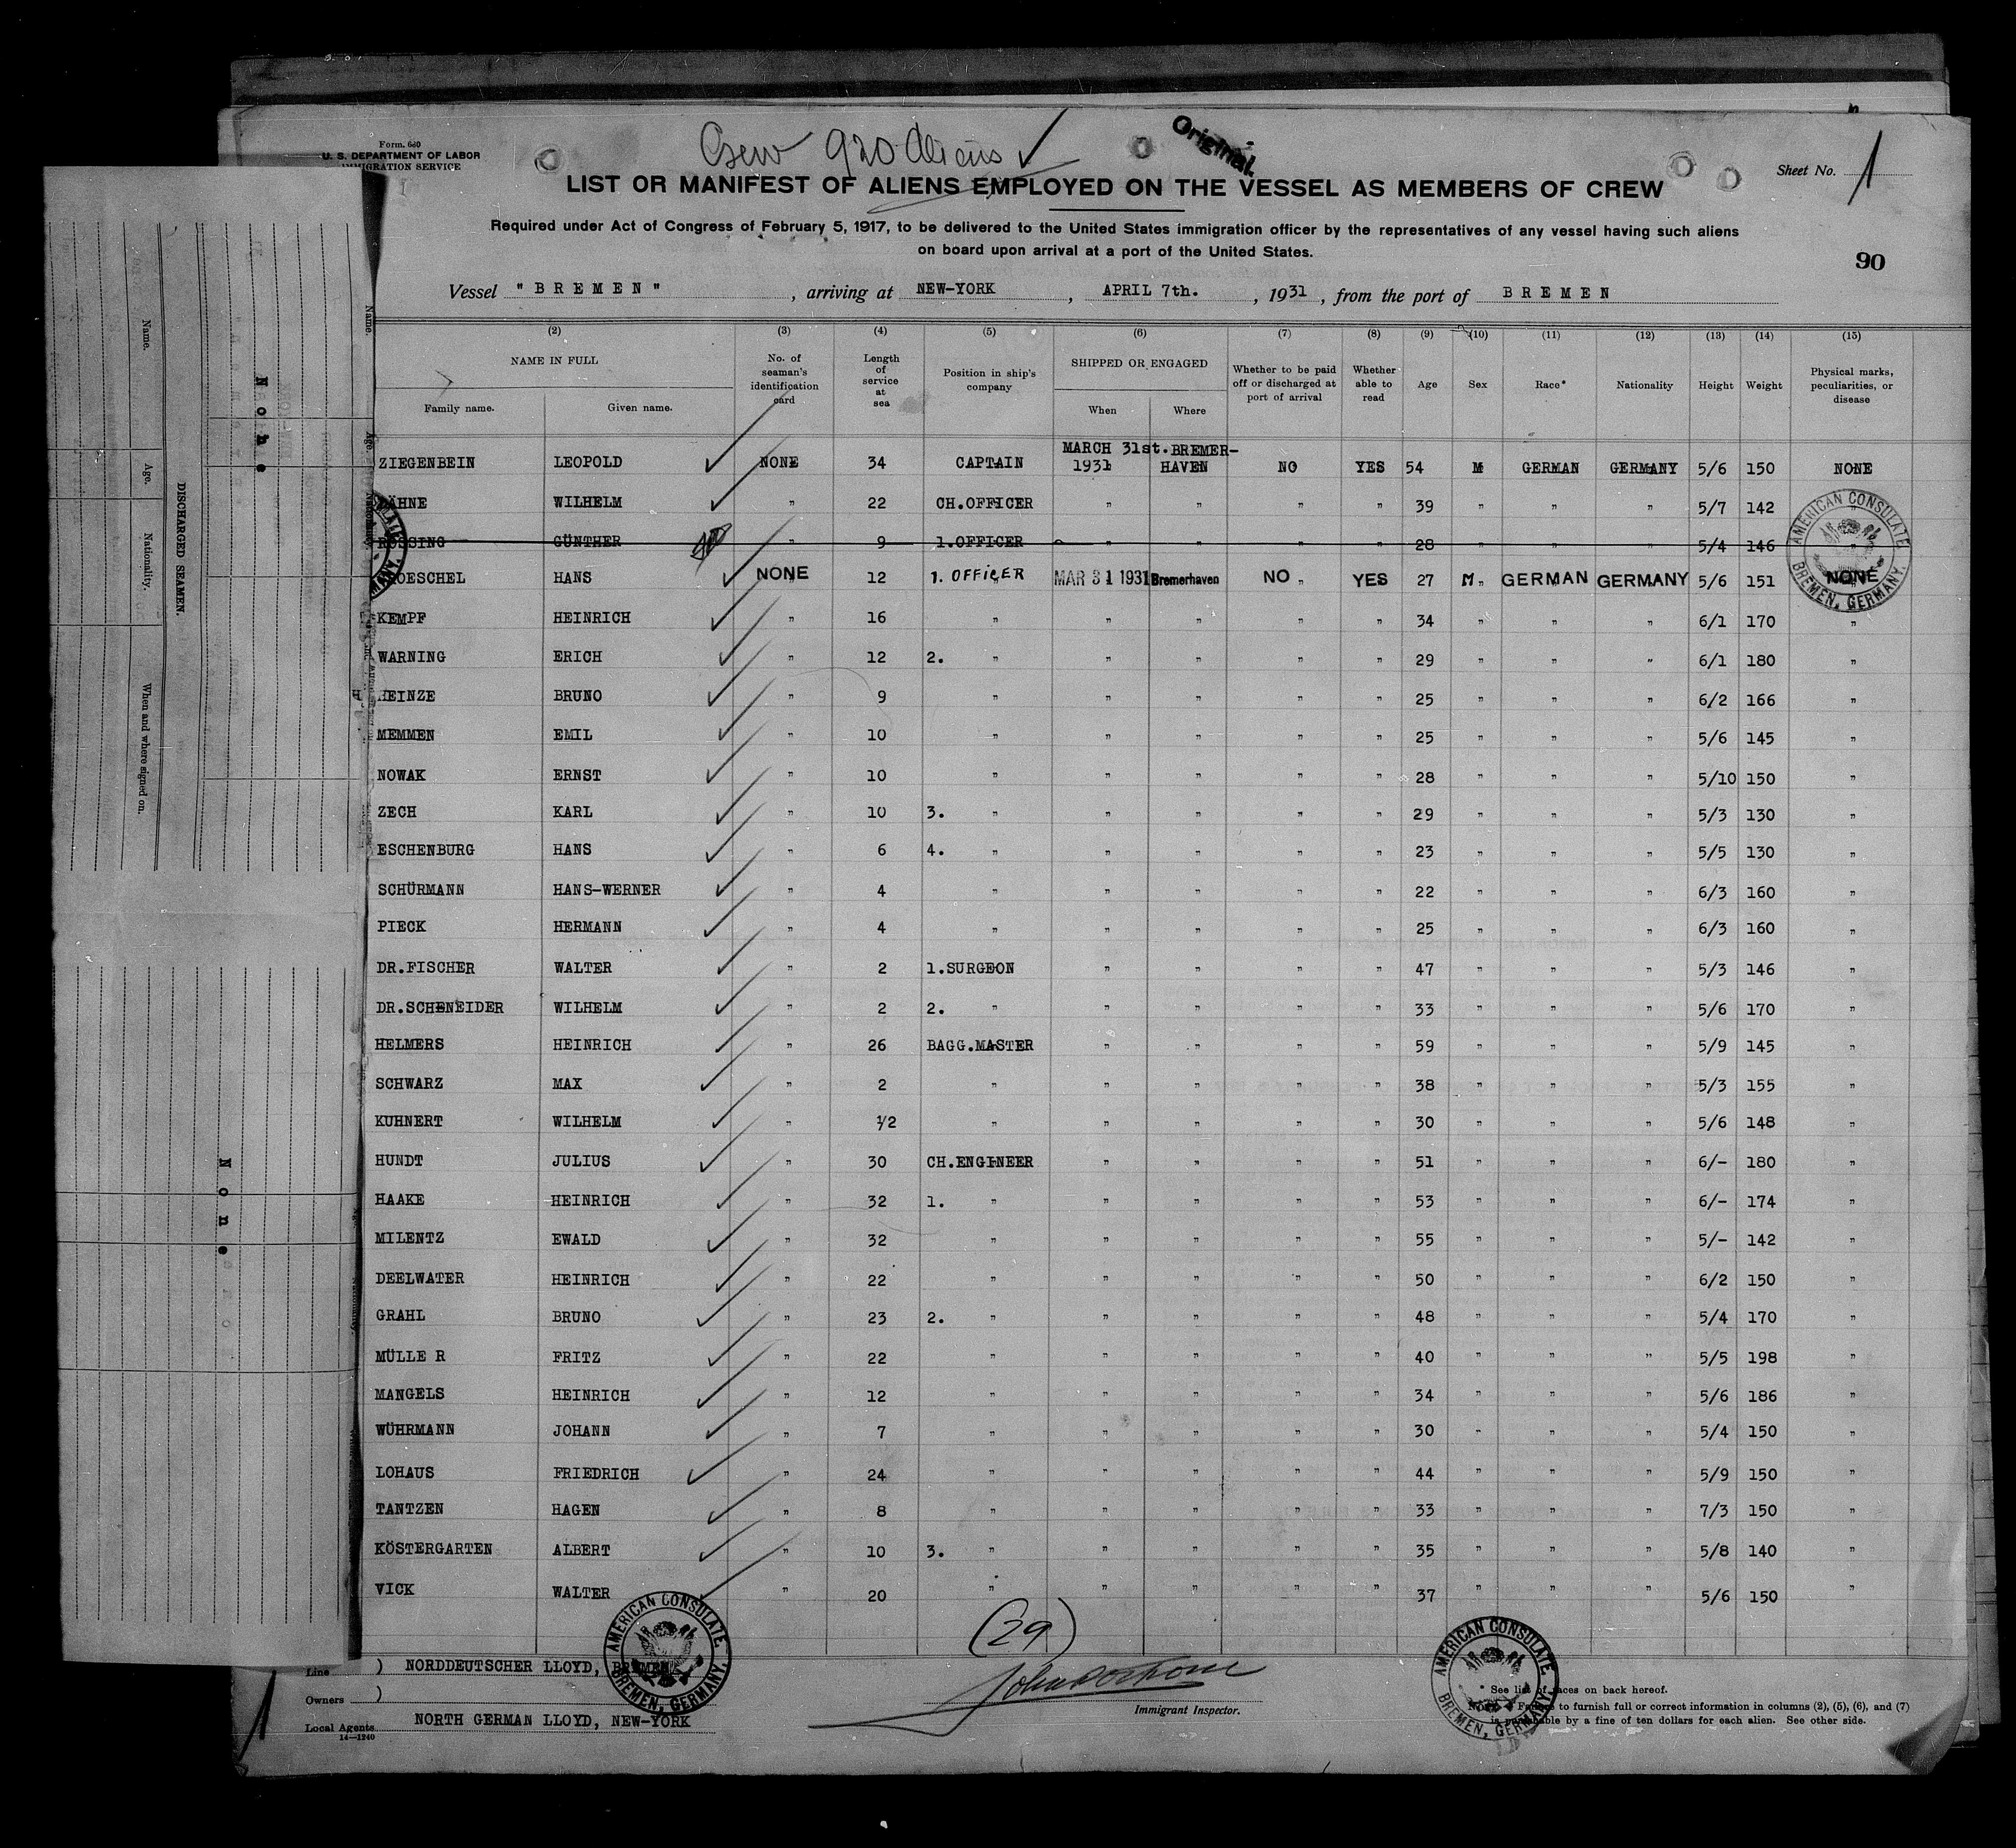 Form. 680
U. S. DEPARTMENT OF LABOR
IMMIGRATION SERVICE
Crew 920 Aliens
Original.
Sheet No. 1
LIST OR MANIFEST OF ALIENS EMPLOYED ON THE VESSEL AS MEMBERS OF CREW
Required under Act of Congress of February 5, 1917, to be delivered to the United States immigration officer by the representatives of any vessel having such aliens
on board upon arrival at a port of the United States.
90
Vessel "BREMEN", arriving at NEW-YORK, APRIL 7th., 1931, from the port of BREMEN
(2) (3) (4) (5) (6) (7) (8) (9) (10) (11) (12) (13) (14) (15)
NAME IN FULL
Family name. Given name.
No. of seaman's identification card
Length of service at sea
Position in ship's company
SHIPPED OR ENGAGED
When Where
Whether to be paid off or discharged at port of arrival
Whether able to read
Age Sex Race* Nationality Height Weight
Physical marks, peculiarities, or disease
ZIEGENBEIN LEOPOLD NONE 34 CAPTAIN MARCH 31st. 1931 BREMER-HAVEN NO YES 54 M GERMAN GERMANY 5/6 150 NONE
DÄHNE WILHELM " 22 CH.OFFICER " " " " 39 " " " 5/7 142 "
ROSSING GÜNTHER " 9 1.OFFICER " " " " 28 " " " 5/4 146 "
ROESCHEL HANS NONE 12 1. OFFICER MAR 31 1931 Bremerhaven NO " YES 27 M " GERMAN GERMANY 5/6 151 NONE
KEMPF HEINRICH " 16 " " " " " 34 " " " 6/1 170 "
WARNING ERICH " 12 2. " " " " " 29 " " " 6/1 180 "
HEINZE BRUNO " 9 " " " " " 25 " " " 6/2 166 "
MEMMEN EMIL " 10 " " " " " 25 " " " 5/6 145 "
NOWAK ERNST " 10 " " " " " 28 " " " 5/10 150 "
ZECH KARL " 10 3. " " " " " 29 " " " 5/3 130 "
ESCHENBURG HANS " 6 4. " " " " " 23 " " " 5/5 130 "
SCHÜRMANN HANS-WERNER " 4 " " " " " 22 " " " 6/3 160 "
PIECK HERMANN " 4 " " " " " 25 " " " 6/3 160 "
DR.FISCHER WALTER " 2 1.SURGEON " " " " 47 " " " 5/3 146 "
DR.SCHENEIDER WILHELM " 2 2. " " " " " 33 " " " 5/6 170 "
HELMERS HEINRICH " 26 BAGG.MASTER " " " " 59 " " " 5/9 145 "
SCHWARZ MAX " 2 " " " " " 38 " " " 5/3 155 "
KUHNERT WILHELM " 1/2 " " " " " 30 " " " 5/6 148 "
HUNDT JULIUS " 30 CH.ENGINEER " " " " 51 " " " 6/- 180 "
HAAKE HEINRICH " 32 1. " " " " " 53 " " " 6/- 174 "
MILENTZ EWALD " 32 " " " " " 55 " " " 5/- 142 "
DEELWATER HEINRICH " 22 " " " " " 50 " " " 6/2 150 "
GRAHL BRUNO " 23 2. " " " " " 48 " " " 5/4 170 "
MÜLLE R FRITZ " 22 " " " " " 40 " " " 5/5 198 "
MANGELS HEINRICH " 12 " " " " " 34 " " " 5/6 186 "
WÜHRMANN JOHANN " 7 " " " " " 30 " " " 5/4 150 "
LOHAUS FRIEDRICH " 24 " " " " " 44 " " " 5/9 150 "
TANTZEN HAGEN " 8 " " " " " 33 " " " 7/3 150 "
KÖSTERGARTEN ALBERT " 10 3. " " " " " 35 " " " 5/8 140 "
VICK WALTER " 20 " " " " " 37 " " " 5/6 150 "
AMERICAN CONSULATE. BREMEN, GERMANY.
AMERICAN CONSULATE. BREMEN, GERMANY.
AMERICAN CONSULATE. BREMEN, GERMANY.
(29)
Line ) NORDDEUTSCHER LLOYD, BREMEN
Owners )
Local Agents NORTH GERMAN LLOYD, NEW-YORK
14—1240
Immigrant Inspector.
* See list of races on back hereof.
NOTE.—Failure to furnish full or correct information in columns (2), (5), (6), and (7)
is punishable by a fine of ten dollars for each alien. See other side.
Name. Age. Nationality. When and where signed on.
DISCHARGED SEAMEN.
None
None
Name.
Age.